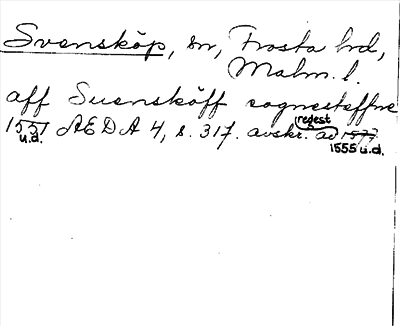 Svensköp, sn, Frosta hd,
Malm. l.
aff Suensköff sognesteffne
1551 AEDA 4, s. 317. avskr. av 1577
u.d. regest 1555 u.d.